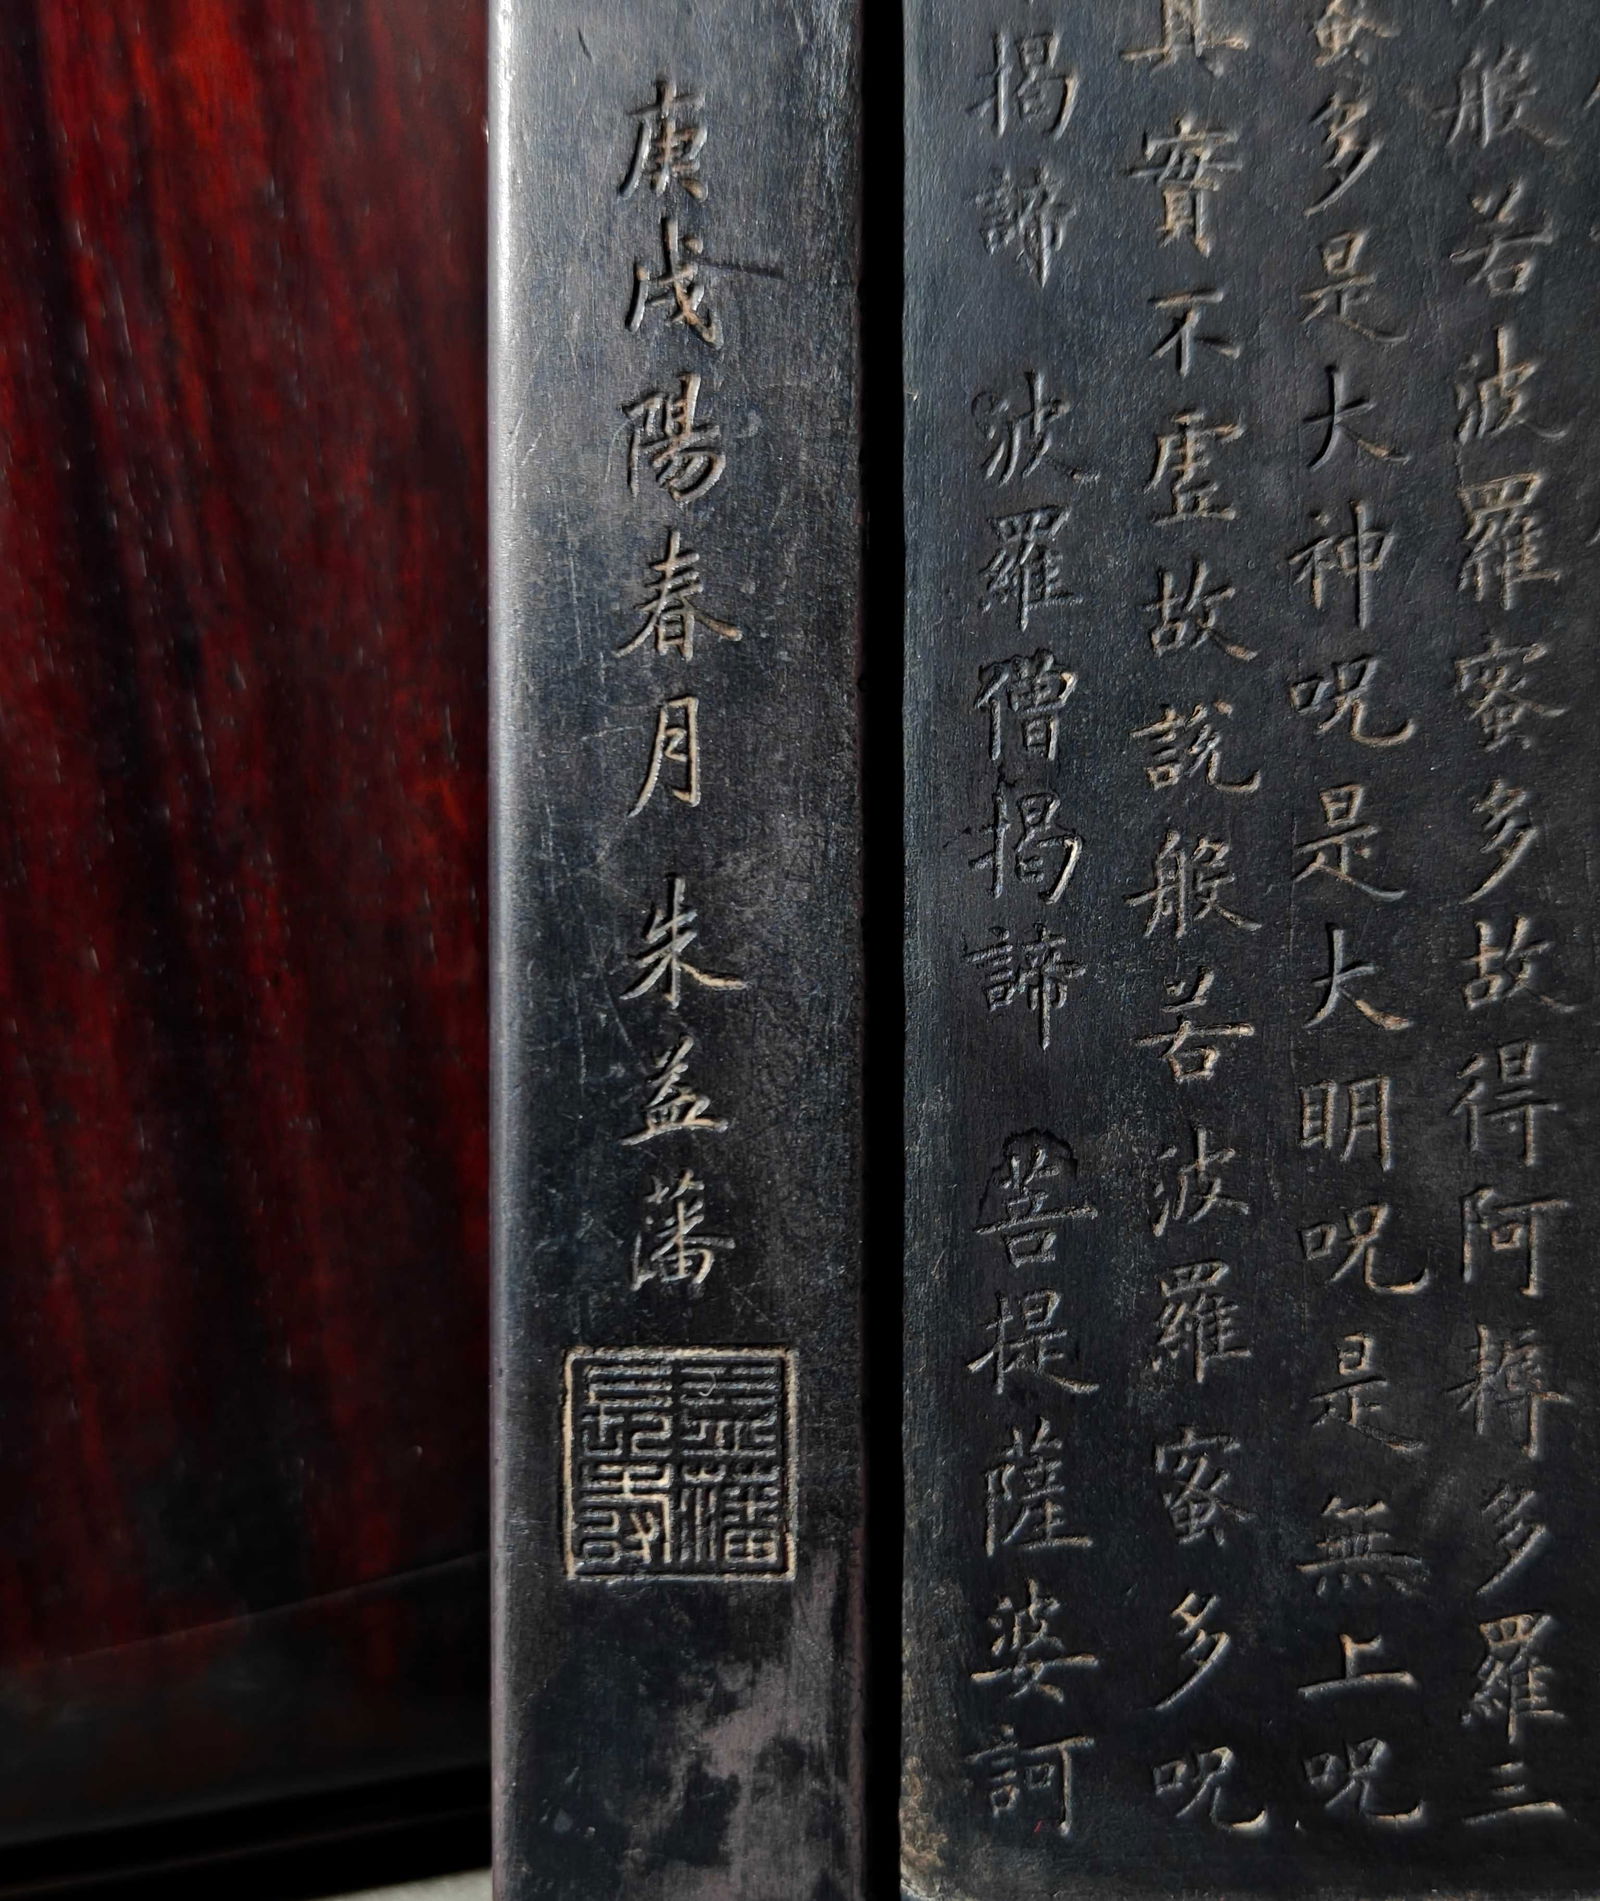 般若波羅蜜多故得阿耨多羅三
多是大神呪是大明呪是無上呪
真實不虛故說般若波羅蜜多呪
揭諦 波羅僧揭諦 菩提薩婆訶
庚戌陽春月 朱益藩